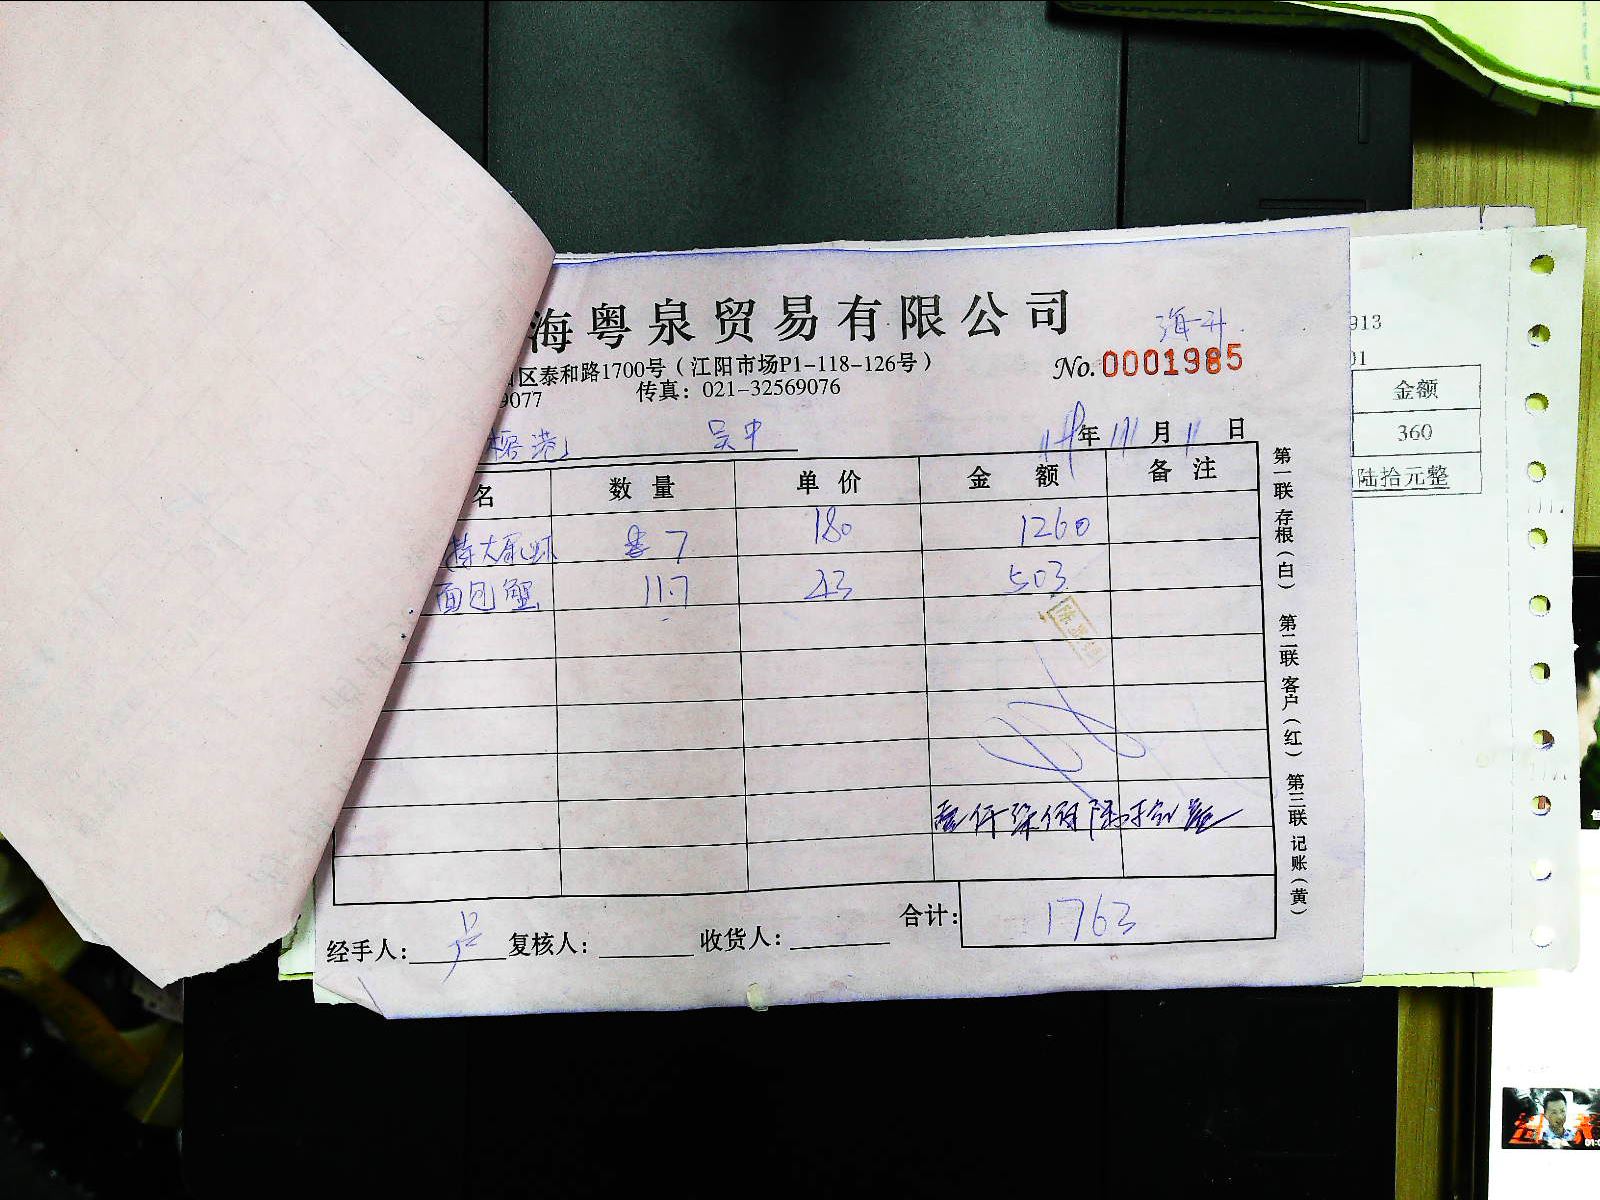 海粤泉贸易有限公司
海斗
区泰和路1700号（江阳市场P1-118-126号）
No.0001985
9077 传真：021-32569076
榕港 吴中 年 11月11日
名 数量 单价 金额 备注
特大 7 180 1260
面包蟹 11.7 43 503
壹仟柒佰陆拾叁
合计： 1763
经手人： 复核人： 收货人：
第一联存根（白） 第二联客户（红） 第三联记账（黄）
913
01
金额
360
陆拾元整